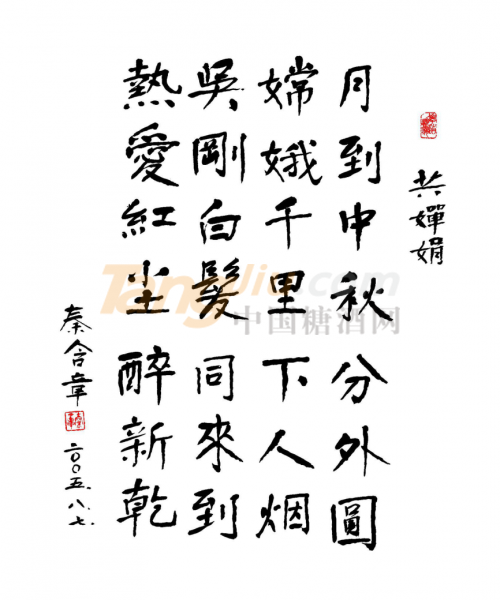 共嬋娟
月到中秋分外圓
嫦娥千里下人烟
吳剛白髮同來到
熱愛紅尘醉新乾
秦含章
二〇〇五.八.七.
TangJiu.com
中国糖酒网